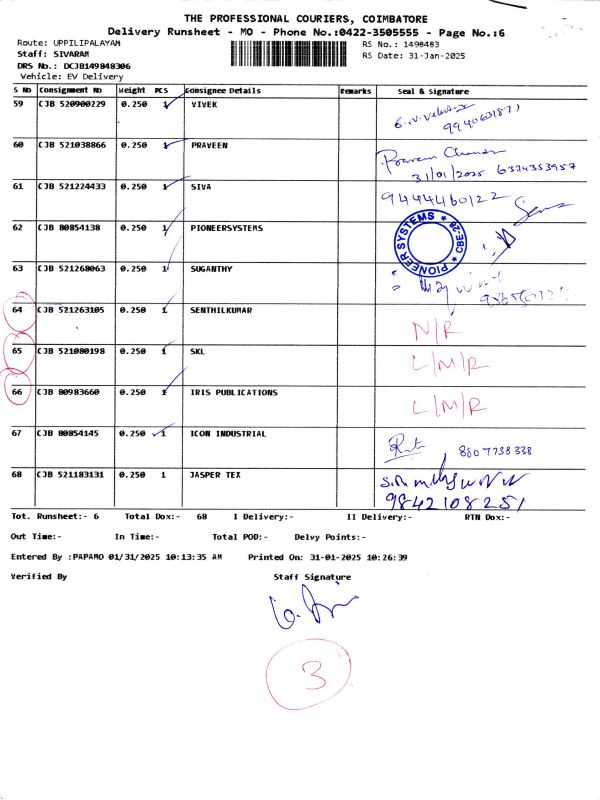 THE PROFESSIONAL COURIERS, COIMBATORE
Delivery Runsheet - MO - Phone No.:0422-3505555 - Page No.:6
Route: UPPILIPALAYAM
Staff: SIVARAM
DRS No.: DCJB149848306
Vehicle: EV Delivery
RS No.: 1498483
RS Date: 31-Jan-2025
S No Consignment No Weight PCS Consignee Details Remarks Seal & Signature
59 CJB 520900229 0.250 1 VIVEK
9940631871
60 CJB 521038866 0.250 1 PRAVEEN
Praveen
31/01/2025 6374353957
61 CJB 521224433 0.250 1 SIVA 9444460122
62 CJB 80854138 0.250 1 PIONEERSYSTEMS
PIONEER SYSTEMS ★ CBE-28 ★
63 CJB 521268063 0.250 1 SUGANTHY
64 CJB 521263105 0.250 1 SENTHILKUMAR N/R
65 CJB 521080198 0.250 1 SKL L/M/R
66 CJB 80983660 0.250 1 IRIS PUBLICATIONS L/M/R
67 CJB 80854145 0.250 1 ICON INDUSTRIAL 8807738338
68 CJB 521183131 0.250 1 JASPER TEX
9842108251
Tot. Runsheet:- 6 Total Dox:- 68 I Delivery:- II Delivery:- RTN Dox:-
Out Time:- In Time:- Total POD:- Delvy Points:-
Entered By :PAPAMO 01/31/2025 10:13:35 AM Printed On: 31-01-2025 10:26:39
Verified By Staff Signature
3